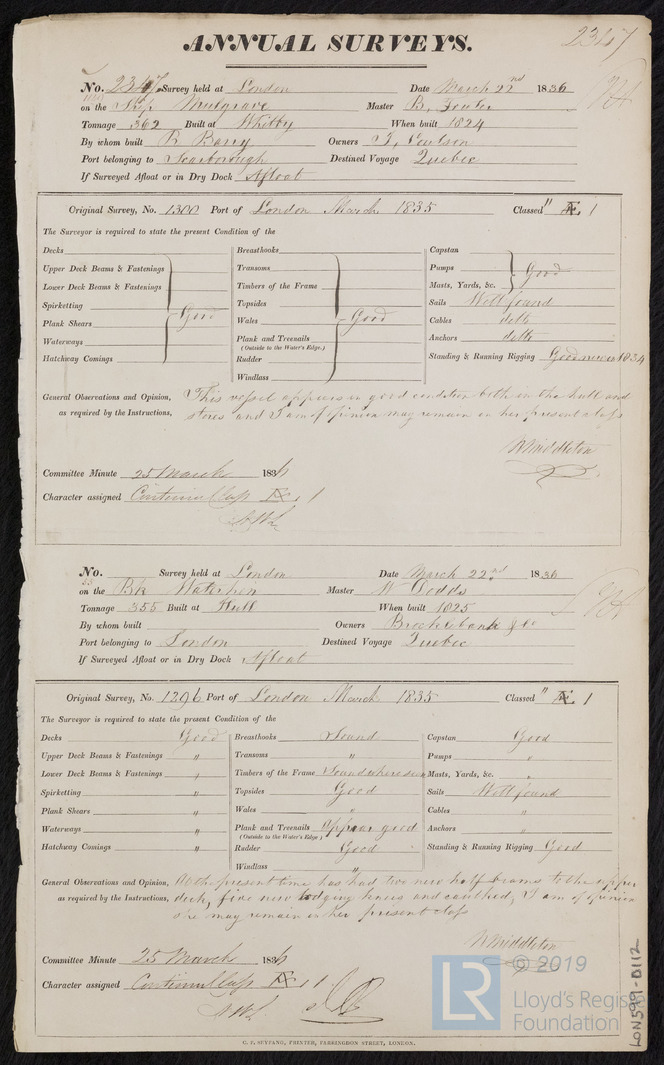 ANNUAL SURVEYS.
2347
No. 2347 Survey held at London Date March 22nd 1836
on the Ship Mulgrave Master B. Fowler
Tonnage 362 Built at Whitby When built 1824
By whom built R Barry Owners T. Coulson
Port belonging to Scarborough Destined Voyage Quebec
If Surveyed Afloat or in Dry Dock Afloat
Original Survey, No. 1300 Port of London March 1835 Classed " Æ 1
The Surveyor is required to state the present Condition of the
Decks
Upper Deck Beams & Fastenings
Lower Deck Beams & Fastenings
Spirketting
Good
Plank Shears
Waterways
Hatchway Comings
Breasthooks
Transoms
Timbers of the Frame
Topsides
Wales
Good
Plank and Treenails
(Outside to the Water's Edge.)
Rudder
Windlass
Capstan
Pumps
Good
Masts, Yards, &c.
Sails Well found
Cables ditto
Anchors ditto
Standing & Running Rigging Good new in 1834
General Observations and Opinion, This vessel appears in good condition both in the hull and
as required by the Instructions, stores and I am of opinion may remain in her present class
W Middleton
Committee Minute 25 March 1836
Character assigned Continued Class Æ 1
No. Survey held at London Date March 22nd 1836
on the Bk Waterhen Master W Dodds
Tonnage 355 Built at Hull When built 1825
By whom built Owners Brocklebank & Co
Port belonging to London Destined Voyage Quebec
If Surveyed Afloat or in Dry Dock Afloat
Original Survey, No. 1296 Port of London March 1835 Classed " Æ 1
The Surveyor is required to state the present Condition of the
Decks Good
Upper Deck Beams & Fastenings "
Lower Deck Beams & Fastenings "
Spirketting "
Plank Shears "
Waterways "
Hatchway Comings "
Breasthooks Sound
Transoms "
Timbers of the Frame Sound where seen
Topsides Good
Wales "
Plank and Treenails appear good
(Outside to the Water's Edge)
Rudder Good
Windlass "
Capstan Good
Pumps "
Masts, Yards, &c. "
Sails Well found
Cables "
Anchors "
Standing & Running Rigging Good
General Observations and Opinion, At the present time has had two new half beams to the upper
as required by the Instructions, deck, five new lodging knees and caulked, I am of opinion
she may remain in her present class
W Middleton
Committee Minute 25 March 1836
Character assigned Continued Class Æ 1
C. F. SEYFANG, PRINTER, FARRINGDON STREET, LONDON.
LON599-0112
LR
© 2019
Lloyd's Register
Foundation